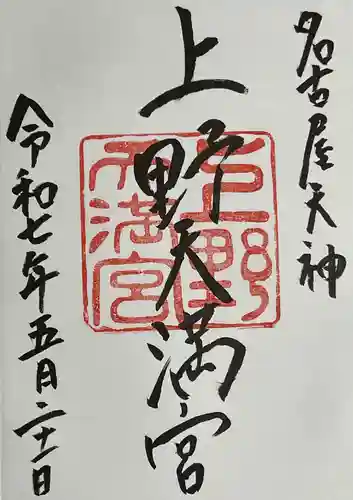 名古屋天神
上野天満宮
上野天満宮
令和七年五月二十一日